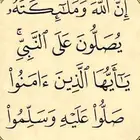 إِنَّ ٱللَّهَ وَمَلَـٰٓئِكَتَهُۥ
يُصَلُّونَ عَلَى ٱلنَّبِىِّ ۚ
يَـٰٓأَيُّهَا ٱلَّذِينَ ءَامَنُوا۟
صَلُّوا۟ عَلَيْهِ وَسَلِّمُوا۟